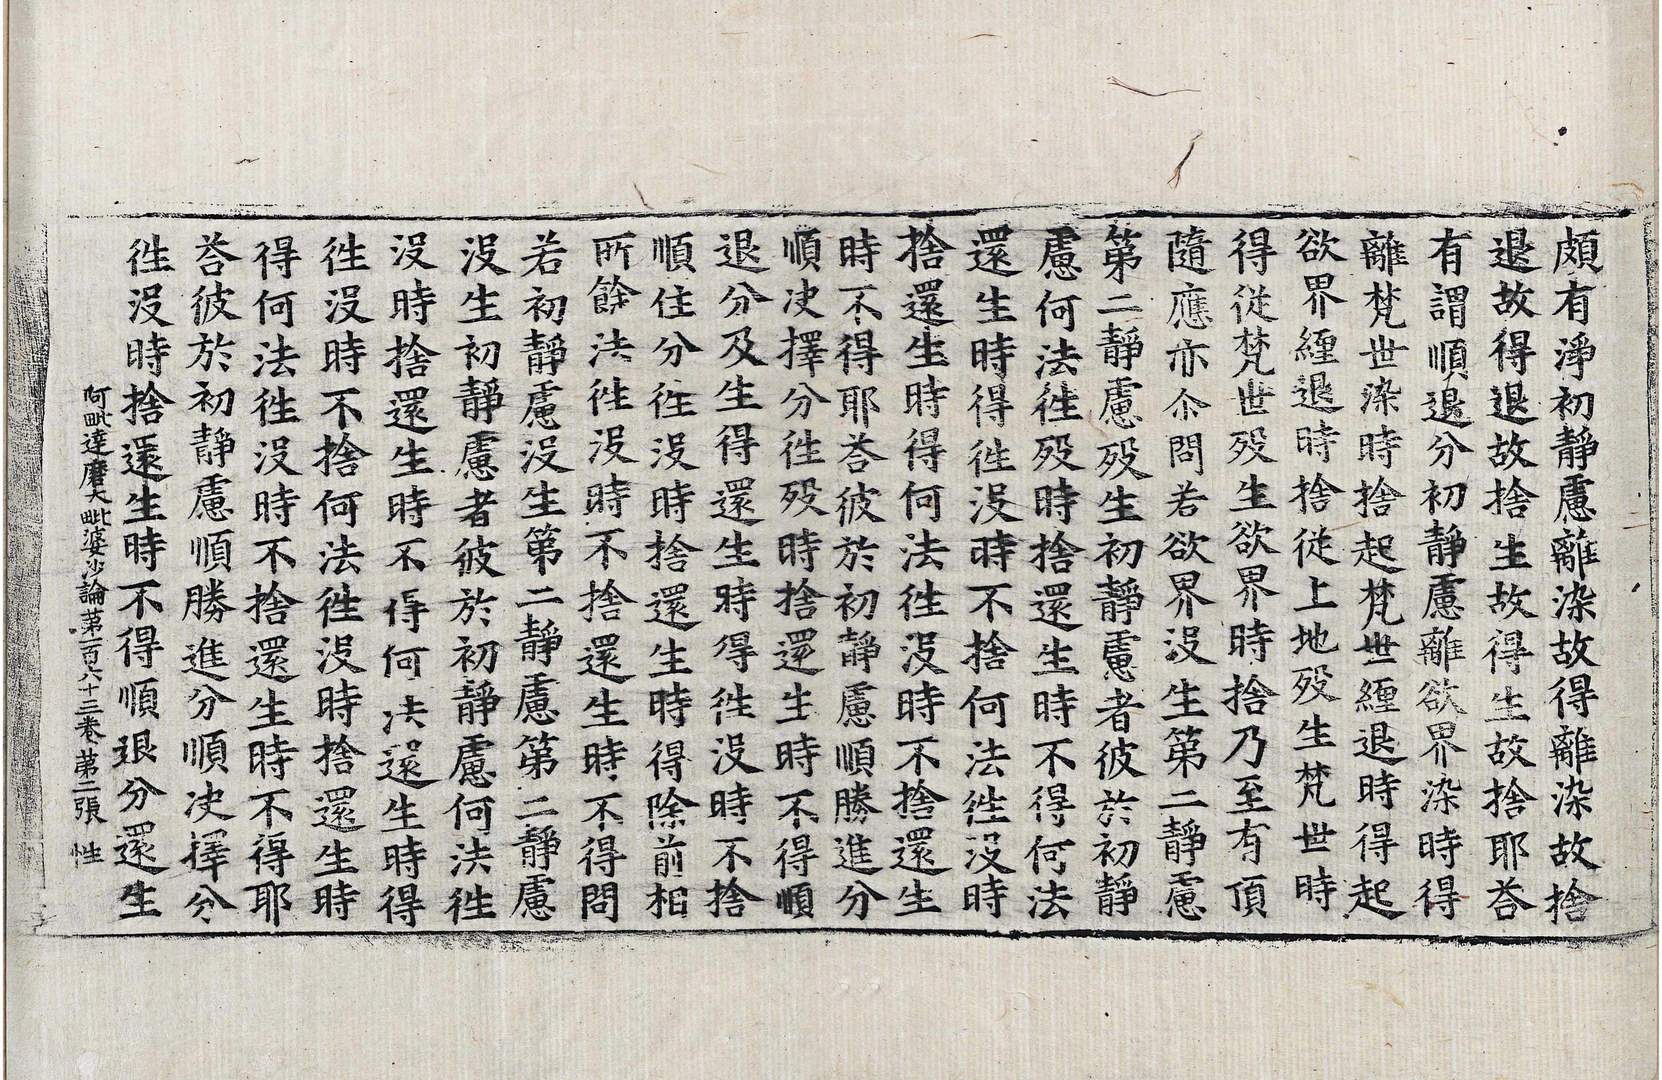 頗有淨初靜慮離染故得離染故捨
退故得退故捨生故得生故捨耶荅
有謂順退分初靜慮離欲界染時得
離梵世染時捨起梵世纏退時得起
欲界纏退時捨從上地歿生梵世時
得從梵世歿生欲界時捨乃至有頂
隨應亦尒問若欲界沒生第二靜慮
第二靜慮歿生初靜慮者彼於初靜
慮何法徃歿時捨還生時不得何法
還生時得徃沒時不捨何法徃沒時
捨還生時得何法徃沒時不捨還生
時不得耶荅彼於初靜慮順勝進分
順决擇分徃歿時捨還生時不得順
退分及生得還生時得徃沒時不捨
順住分徃沒時捨還生時得除前相
所餘法徃沒時不捨還生時不得問
若初靜慮沒生第二靜慮第二靜慮
沒生初靜慮者彼於初靜慮何法徃
沒時捨還生時不得何法還生時得
徃沒時不捨何法徃沒時捨還生時
得何法徃沒時不捨還生時不得耶
荅彼於初靜慮順勝進分順决擇分
徃沒時捨還生時不得順退分還生
阿毗達磨大毗婆沙論第一百六十三卷 第二張 性